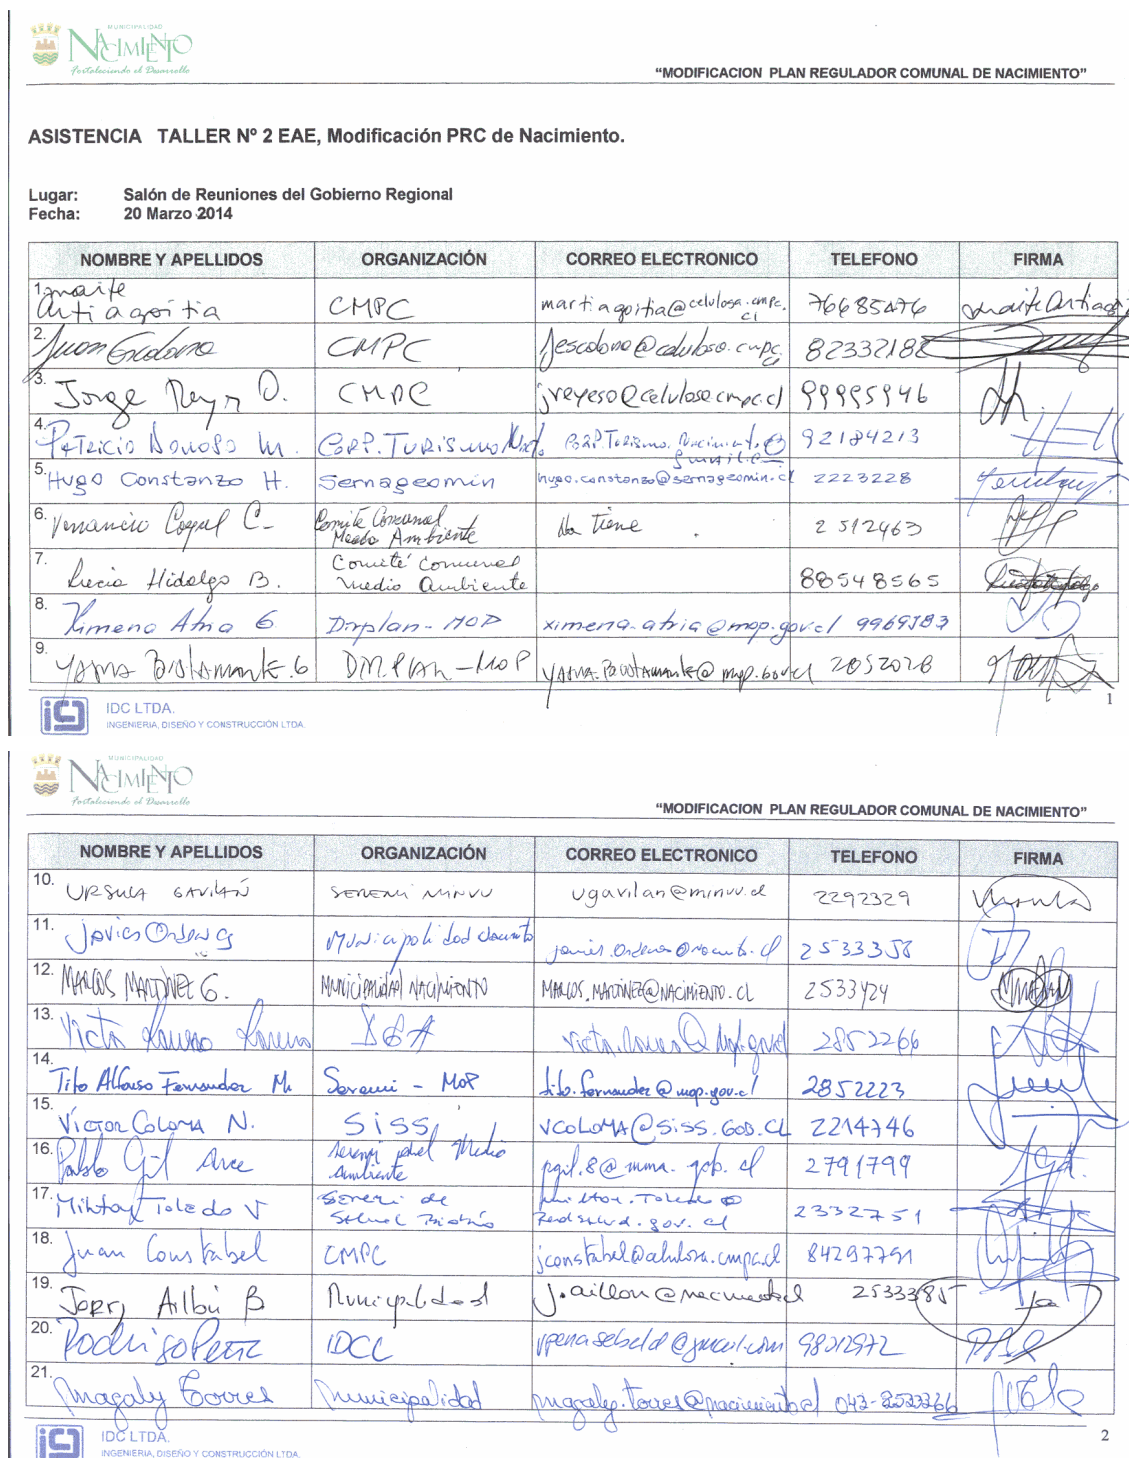 MUNICIPALIDAD
NACIMIENTO
Fortaleciendo el Desarrollo
“MODIFICACION PLAN REGULADOR COMUNAL DE NACIMIENTO”
ASISTENCIA TALLER Nº 2 EAE, Modificación PRC de Nacimiento.
Lugar: Salón de Reuniones del Gobierno Regional
Fecha: 20 Marzo 2014
NOMBRE Y APELLIDOS ORGANIZACIÓN CORREO ELECTRONICO TELEFONO FIRMA
1. maite
Artiagoitia CMPC martiagoitia@celulosa.cmpc.cl 76685476 maite Artiag
2. Juan CMPC jescalona@celulosa.cmpc.cl 82332182
3. Jorge Reyes O. CMPC jreyeso@celulosa.cmpc.cl 99995946
4. Patricio Donoso M. CORP. TURISMO 92184213
5. Hugo Constanzo H. Sernageomin hugo.constanzo@sernageomin.cl 2223228
6. Venancio C. Comité Comunal
Medio Ambiente No tiene 2 512463
7. Lucia Hidalgo B. Comité Comunal
Medio Ambiente 88548565
8. Ximena Atria G Dirplan-MOP ximena.atria@mop.gov.cl 9969583
9. YASNA BUSTAMANTE.G DIRPLAN-MOP YASNA.BUSTAMANTE@mop.gov.cl 2852028
1
IDC LTDA.
INGENIERIA, DISEÑO Y CONSTRUCCIÓN LTDA.
MUNICIPALIDAD
NACIMIENTO
Fortaleciendo el Desarrollo
“MODIFICACION PLAN REGULADOR COMUNAL DE NACIMIENTO”
NOMBRE Y APELLIDOS ORGANIZACIÓN CORREO ELECTRONICO TELEFONO FIRMA
10. URSULA GAVILÁN SEREMI MINVU ugavilan@minvu.cl 2292329 Ursula
11. Javier Municipalidad 2533358
12. MARCOS MARTINEZ G. MUNICIPALIDAD NACIMIENTO MARCOS.MARTINEZ@NACIMIENTO.CL 2533424
13. Victor DGA 2852266
14. Tito Alfonso Fernandez M. Seremi - MOP tito.fernandez@mop.gov.cl 2852223
15. Victor Coloma N. SiSS VCOLOMA@SISS.GOB.CL 2214746
16. Pablo Gil Arce Seremi del Medio
Ambiente pgil.8@mma.gob.cl 2791799
17. Milton Toledo V Seremi de
Salud Biobío milton.Toledo@
redsalud.gov.cl 2332751
18. Juan Constabel CMPC jconstabel@celulosa.cmpc.cl 84297791
19. B Municipalidad 2533385
20. Rodrigo Peña IDCL 98212972
21. Magaly Torres Municipalidad magaly.torres@nacimiento.cl 043-2533266
IDC LTDA.
INGENIERIA, DISEÑO Y CONSTRUCCIÓN LTDA.
2